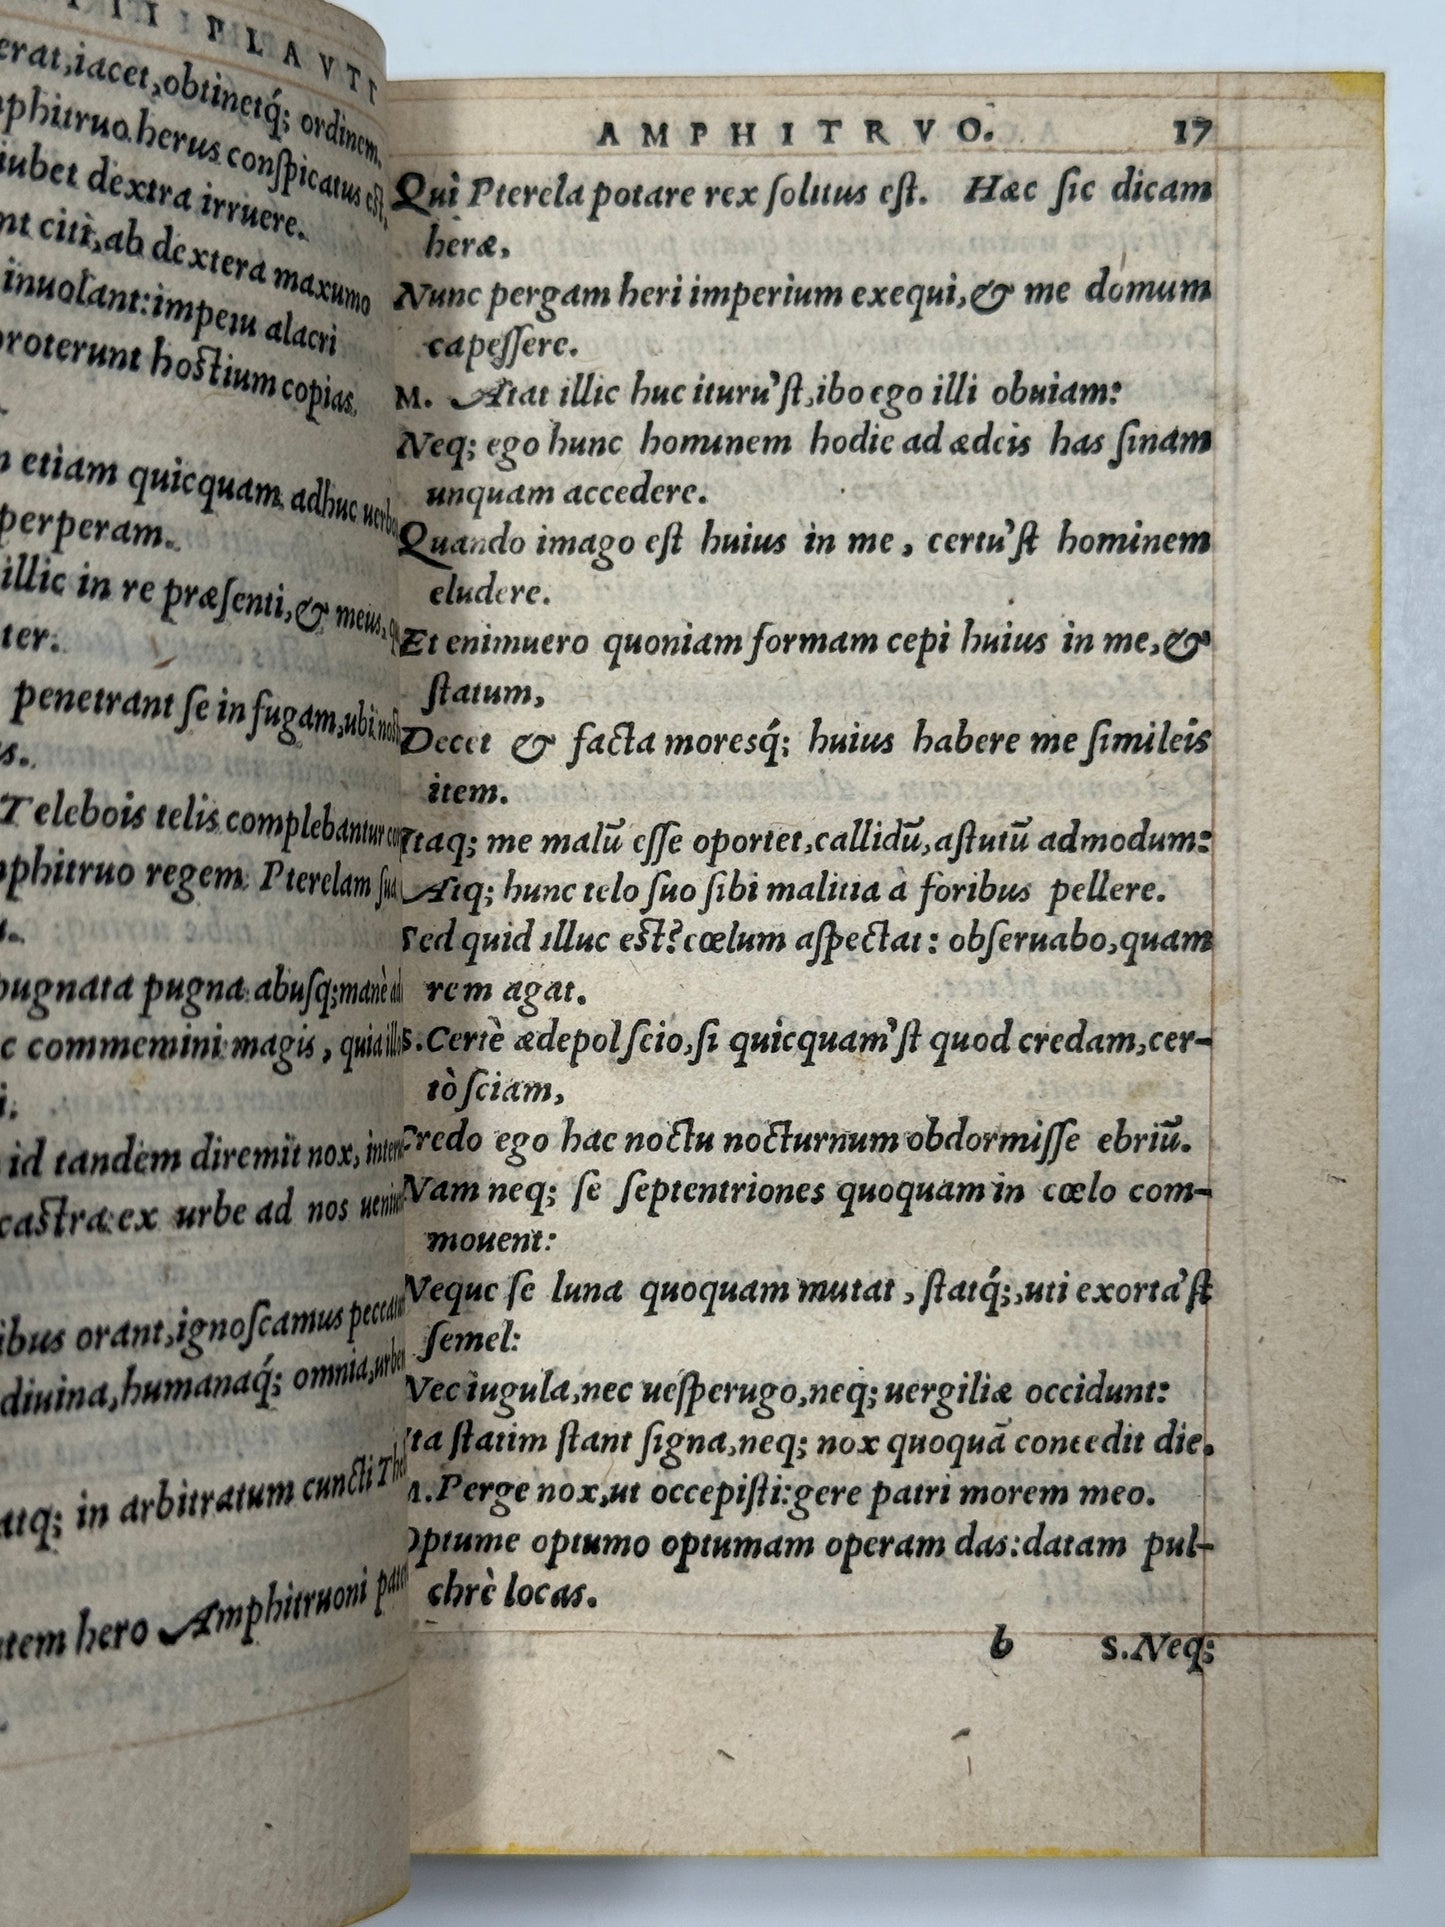 PLAVTI
erat,iacet,obtinetq́; ordinem.
Amphitruo herus conſpicatus eſt,
iubet dextra irruere.
citì,ab dextera maxumo
inuolant:impetu alacri
proterunt hoſtium copias.
etiam quicquam adhuc
perperam.
illic in re præſenti,& meus,
penetrant ſe in fugam,ubi
Telebois telis complebantur
Amphitruo regem Pterelam
pugnata pugna abuſq;manè
commemini magis, quia
id tandem diremit nox,
caſtra ex urbe ad nos
orant,ignoſcamus
diuina,humanaq́; omnia,
atq; in arbitratum cuncti
hero Amphitruoni
AMPHITRVO. 17
Qui Pterela potare rex ſolitus eſt. Hæc ſic dicam
heræ,
Nunc pergam heri imperium exequi,& me domum
capeſſere.
M. Atat illic huc ituru'ſt,ibo ego illi obuiam:
Neq; ego hunc hominem hodie ad ædeis has ſinam
unquam accedere.
Quando imago eſt huius in me, certu'ſt hominem
eludere.
Et enimuero quoniam formam cepi huius in me,&
ſtatum,
Decet & facta moresq́; huius habere me ſimileis
item.
Itaq; me malū eſſe oportet,callidū,aſtutū admodum:
Atq; hunc telo ſuo ſibi malitia à foribus pellere.
Sed quid illuc eſt?cœlum aſpectat: obſeruabo,quam
rem agat.
S. Certè ædepol ſcio,ſi quicquam'ſt quod credam,cer-
tò ſciam,
Credo ego hac noctu nocturnum obdormiſſe ebriū.
Nam neq; ſe ſeptentriones quoquam in cœlo com-
mouent:
Neque ſe luna quoquam mutat, ſtatq́;,uti exorta'ſt
ſemel:
Nec iugula,nec ueſperugo,neq; uergiliæ occidunt:
Ita ſtatim ſtant ſigna,neq; nox quoquā concedit die.
M. Perge nox,ut occepiſti:gere patri morem meo.
Optume optumo optumam operam das:datam pul-
chrè locas.
b S.Neq;